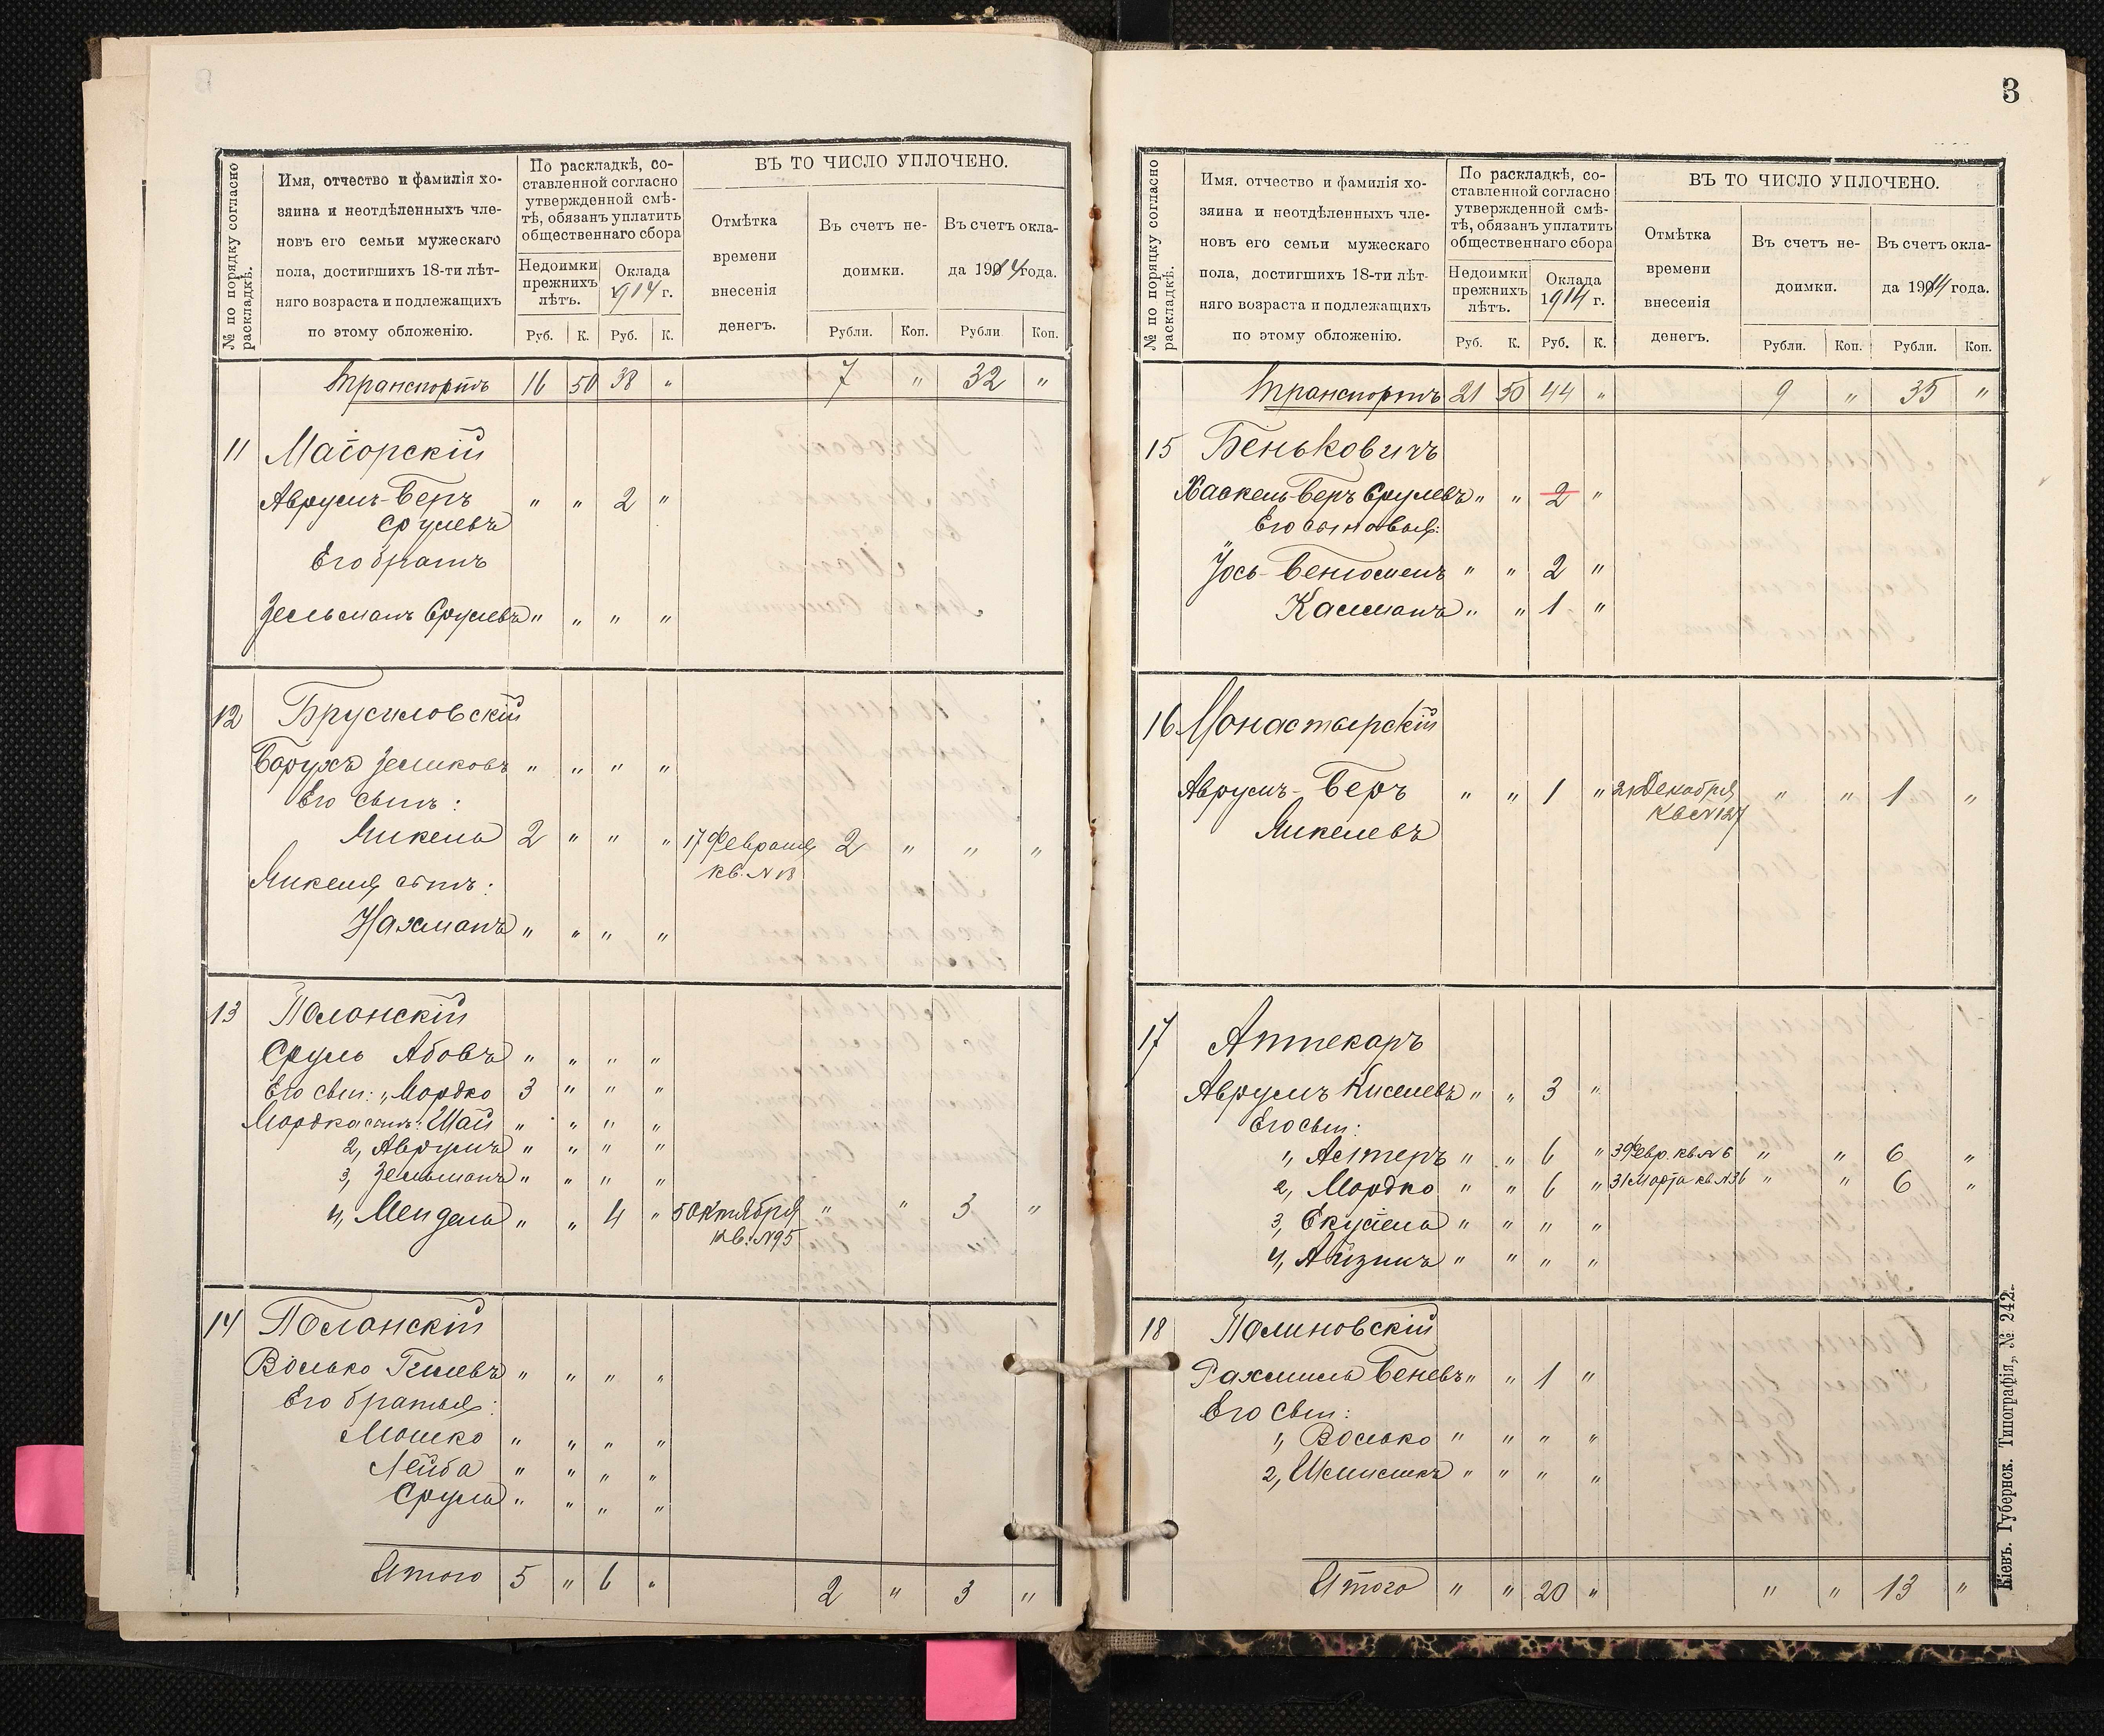 № по порядку согласно раскладкѣ.
Имя, отчество и фамилія хо-
зяина и неотдѣленныхъ чле-
новъ его семьи мужескаго
пола, достигшихъ 18-ти лѣт-
няго возраста и подлежащихъ
по этому обложенію.
По раскладкѣ, со-
ставленной согласно
утвержденной смѣ-
тѣ, обязанъ уплатить
общественнаго сбора
Недоимки
прежнихъ
лѣтъ.
Оклада
1914 г.
Руб. К. Руб. К.
ВЪ ТО ЧИСЛО УПЛОЧЕНО.
Отмѣтка
времени
внесенія
денегъ.
Въ счетъ не-
доимки.
Въ счетъ окла-
да 1914 года.
Рубли. Коп. Рубли. Коп.
Транспортъ 16 50 38 " 7 " 32 "
11 Маіорскій
Аврумъ-Беръ " " 2 "
Срулевъ
Его братъ
Зельманъ Срулевъ " " " "
12 Брусиловскій
Борухъ Зеликовъ " " " "
Его сынъ:
Янкель 2 " " " 17 Февраля 2 " " "
кв. N 18
Янкеля сынъ:
Нахманъ " " " "
13 Полонскій
Сруль Абовъ " " " "
Его сын: 1, Мордко 3 " " "
Мордка сынъ: Шай " " " "
2, Аврумъ " " " "
3, Зельманъ " " " "
4, Мендель " " 4 " 5 Октября " " 3 "
кв. N 95
14 Полонскій
Волько Гилевъ " " " "
Его братья:
Мошко " " " "
Лейба " " " "
Сруль " " " "
Итого 5 " 6 " 2 " 3 "
3
№ по порядку согласно раскладкѣ.
Имя, отчество и фамилія хо-
зяина и неотдѣленныхъ чле-
новъ его семьи мужескаго
пола, достигшихъ 18-ти лѣт-
няго возраста и подлежащихъ
по этому обложенію.
По раскладкѣ, со-
ставленной согласно
утвержденной смѣ-
тѣ, обязанъ уплатить
общественнаго сбора
Недоимки
прежнихъ
лѣтъ.
Оклада
1914 г.
Руб. К. Руб. К.
ВЪ ТО ЧИСЛО УПЛОЧЕНО.
Отмѣтка
времени
внесенія
денегъ.
Въ счетъ не-
доимки.
Въ счетъ окла-
да 1914 года.
Рубли. Коп. Рубли. Коп.
Транспортъ 21 50 44 " 9 " 35 "
15 Беньковичъ
Хаскель-Беръ Срулевъ " " 2 "
Его сыновья:
Іось-Веніоменъ " " 2 "
Калманъ " " 1 "
16 Монастырскій
Аврумъ-Беръ " " 1 " Декабря " " 1 "
Янкелевъ кв N 127
17 Аптекаръ
Аврумъ Киселевъ " " 3 "
Его сын:
1, Астеръ " " 6 " Февр. кв. N 6 " " 6 "
2, Мордко " " 6 " 31 Марта кв. N 36 " " 6 "
3, Екусіель " " " "
4, Айзикъ " " " "
18 Полиновскій
Рахмиль Беневъ " " 1 "
Его сын:
1, Волько " " " "
2, " " " "
Итого " " 20 " " " 13 "
Кіевъ. Губернск. Типографія,, № 242.